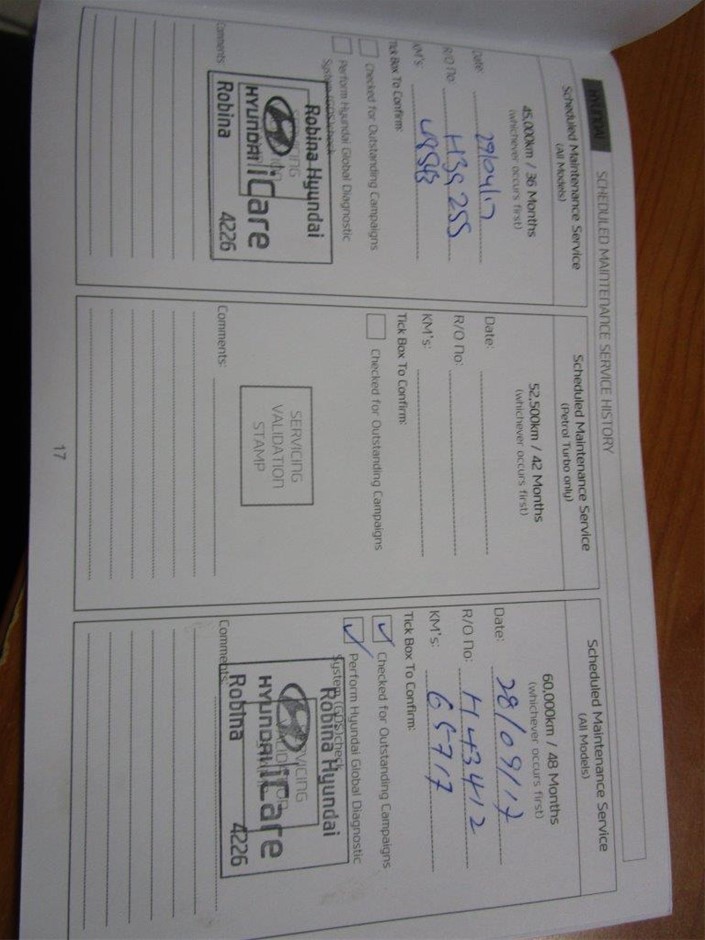 HYUNDAI SCHEDULED MAINTENANCE SERVICE HISTORY
Scheduled Maintenance Service
(All Models)
45,000km / 36 Months
(whichever occurs first)
Date: 29/04/17
R/O No: H39255
KM's:
Tick Box To Confirm:
Checked for Outstanding Campaigns
Perform Hyundai Global Diagnostic
System (GDS)check
Robina Hyundai
HYUNDAI iCare
Robina 4226
Comments:
Scheduled Maintenance Service
(Petrol Turbo only)
52,500km / 42 Months
(whichever occurs first)
Date:
R/O No:
KM's:
Tick Box To Confirm:
Checked for Outstanding Campaigns
SERVICING
VALIDATION
STAMP
Comments:
Scheduled Maintenance Service
(All Models)
60,000km / 48 Months
(whichever occurs first)
Date: 28/09/17
R/O No: H43412
KM's: 65717
Tick Box To Confirm:
Checked for Outstanding Campaigns
Perform Hyundai Global Diagnostic
System (GDS)check
Robina Hyundai
HYUNDAI iCare
Robina 4226
Comments:
17